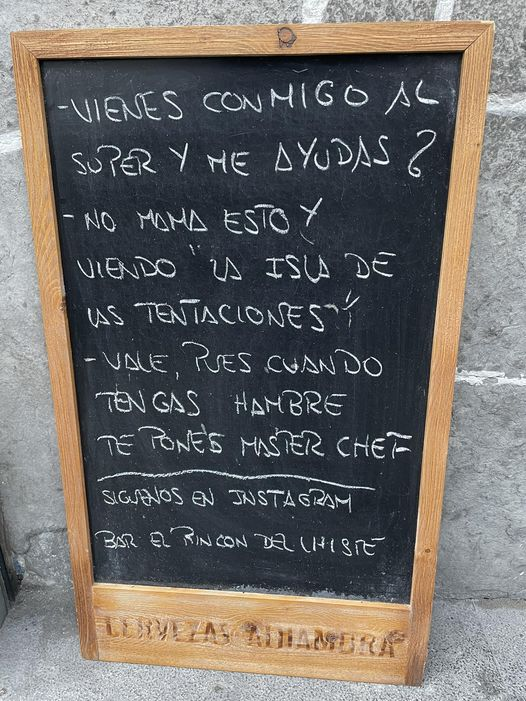 -VIENES CONMIGO AL
SUPER Y ME AYUDAS?
-NO MAMA ESTOY
VIENDO "LA ISLA DE
LAS TENTACIONES"
-VALE, PUES CUANDO
TENGAS HAMBRE
TE PONES MASTER CHEF
SIGUENOS EN INSTAGRAM
BAR EL RINCON DEL CHISTE
CERVEZAS ALHAMBRA